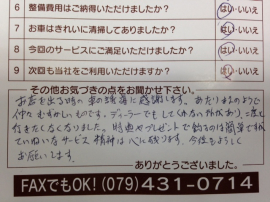 6 整備費用はご納得いただけましたか? はい・いいえ
7 お車はきれいに清掃してありましたか? はい・いいえ
8 今回のサービスにご満足いただけましたか? はい・いいえ
9 次回も当社をご利用いただけますか? はい・いいえ
その他お気づきの点をお聞かせ下さい。
お店を出る時の車の誘導に感謝します。あたりまえのようで
仲々むずかしいものです。ディーラーでもしてくれない所があり、二度と
行きたくなくなりました。特典やプレゼントで釣るのは簡単ですが、
ていねいなサービス精神は心に残ります。今後もよろしく
お願いします。
ありがとうございました。
FAXでもOK! (079) 431-0714